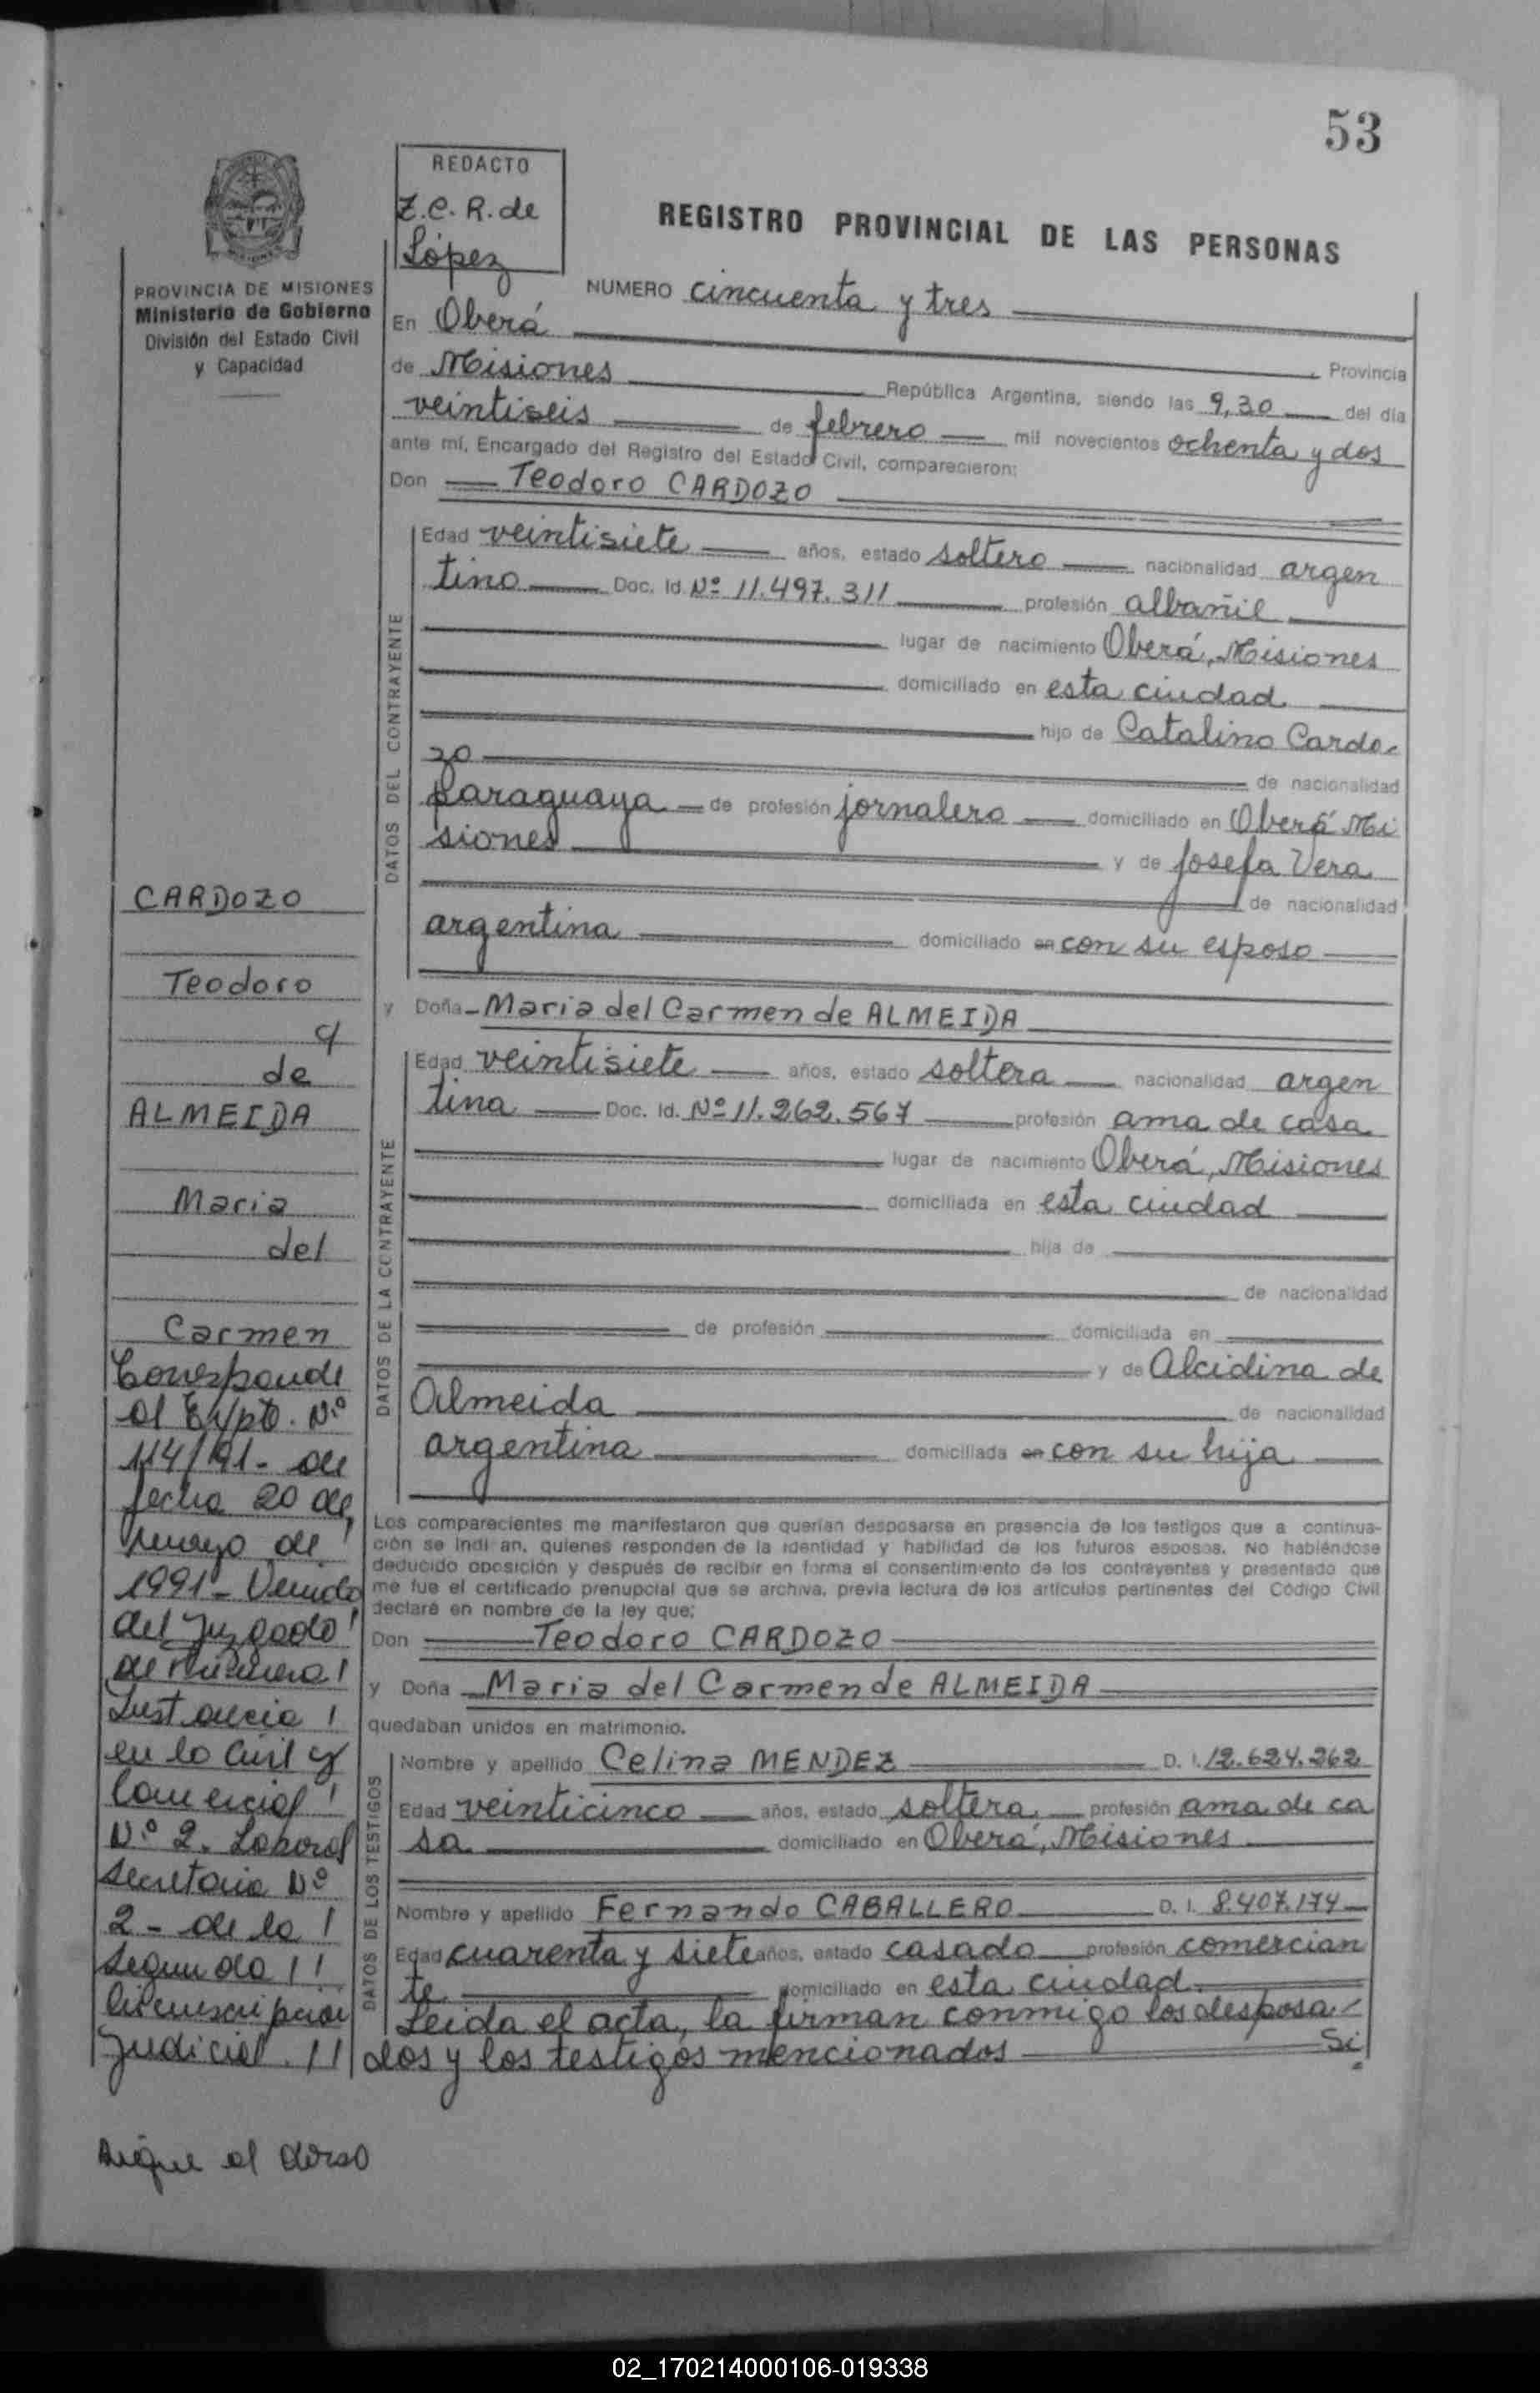 53
REDACTO
Z.C.R. de
López
REGISTRO PROVINCIAL DE LAS PERSONAS
PROVINCIA DE MISIONES
Ministerio de Gobierno
División del Estado Civil
y Capacidad
NUMERO cincuenta y tres
En Oberá
Provincia
de Misiones República Argentina, siendo las 9,30 del día
veintiseis de febrero mil novecientos ochenta y dos
ante mí, Encargado del Registro del Estado Civil, comparecieron:
Don Teodoro CARDOZO
DATOS DEL CONTRAYENTE
Edad veintisiete años, estado soltero nacionalidad argen
tino Doc. Id. Nº 11.497.311 profesión albañil
lugar de nacimiento Oberá, Misiones
domiciliado en esta ciudad
hijo de Catalino Cardo-
zo de nacionalidad
paraguaya de profesión jornalero domiciliado en Oberá Mi
siones y de Josefa Vera
de nacionalidad
argentina domiciliado en con su esposo
y Doña Maria del Carmen de ALMEIDA
DATOS DE LA CONTRAYENTE
Edad veintisiete años, estado soltera nacionalidad argen
tina Doc. Id. Nº 11.262.567 profesión ama de casa
lugar de nacimiento Oberá, Misiones
domiciliada en esta ciudad
hija de
de nacionalidad
de profesión domiciliada en
y de Alcidina de
Almeida de nacionalidad
argentina domiciliada en con su hija
Los comparecientes me manifestaron que querían desposarse en presencia de los testigos que a continua-
ción se indi an, quienes responden de la identidad y habilidad de los futuros esposos. No habiéndose
deducido oposición y después de recibir en forma el consentimiento de los contrayentes y presentado que
me fue el certificado prenupcial que se archiva, previa lectura de los artículos pertinentes del Código Civil
declaré en nombre de la ley que:
Don Teodoro CARDOZO
y Doña Maria del Carmen de ALMEIDA
quedaban unidos en matrimonio.
DATOS DE LOS TESTIGOS
Nombre y apellido Celina MENDEZ D. I. 12.624.262
Edad veinticinco años, estado soltera profesión ama de ca
sa domiciliado en Oberá, Misiones
Nombre y apellido Fernando CABALLERO D. I. 8.407.174
Edad cuarenta y siete años, estado casado profesión comercian
te domiciliado en esta ciudad
Leida el acta, la firman conmigo los desposa-
dos y los testigos mencionados Si
CARDOZO
Teodoro
y
de
ALMEIDA
Maria
del
Carmen
Corresponde
al Expte. Nº
114/91- de
fecha 20 de
mayo de
1991- Venido
del Juzgado
de Primera
Instancia
en lo Civil y
Comercial
Nº 2. Laboral
Secretaria Nº
2- de la
Segunda
Circunscripcion
Judicial.
Sigue al dorso
02_170214000106-019338